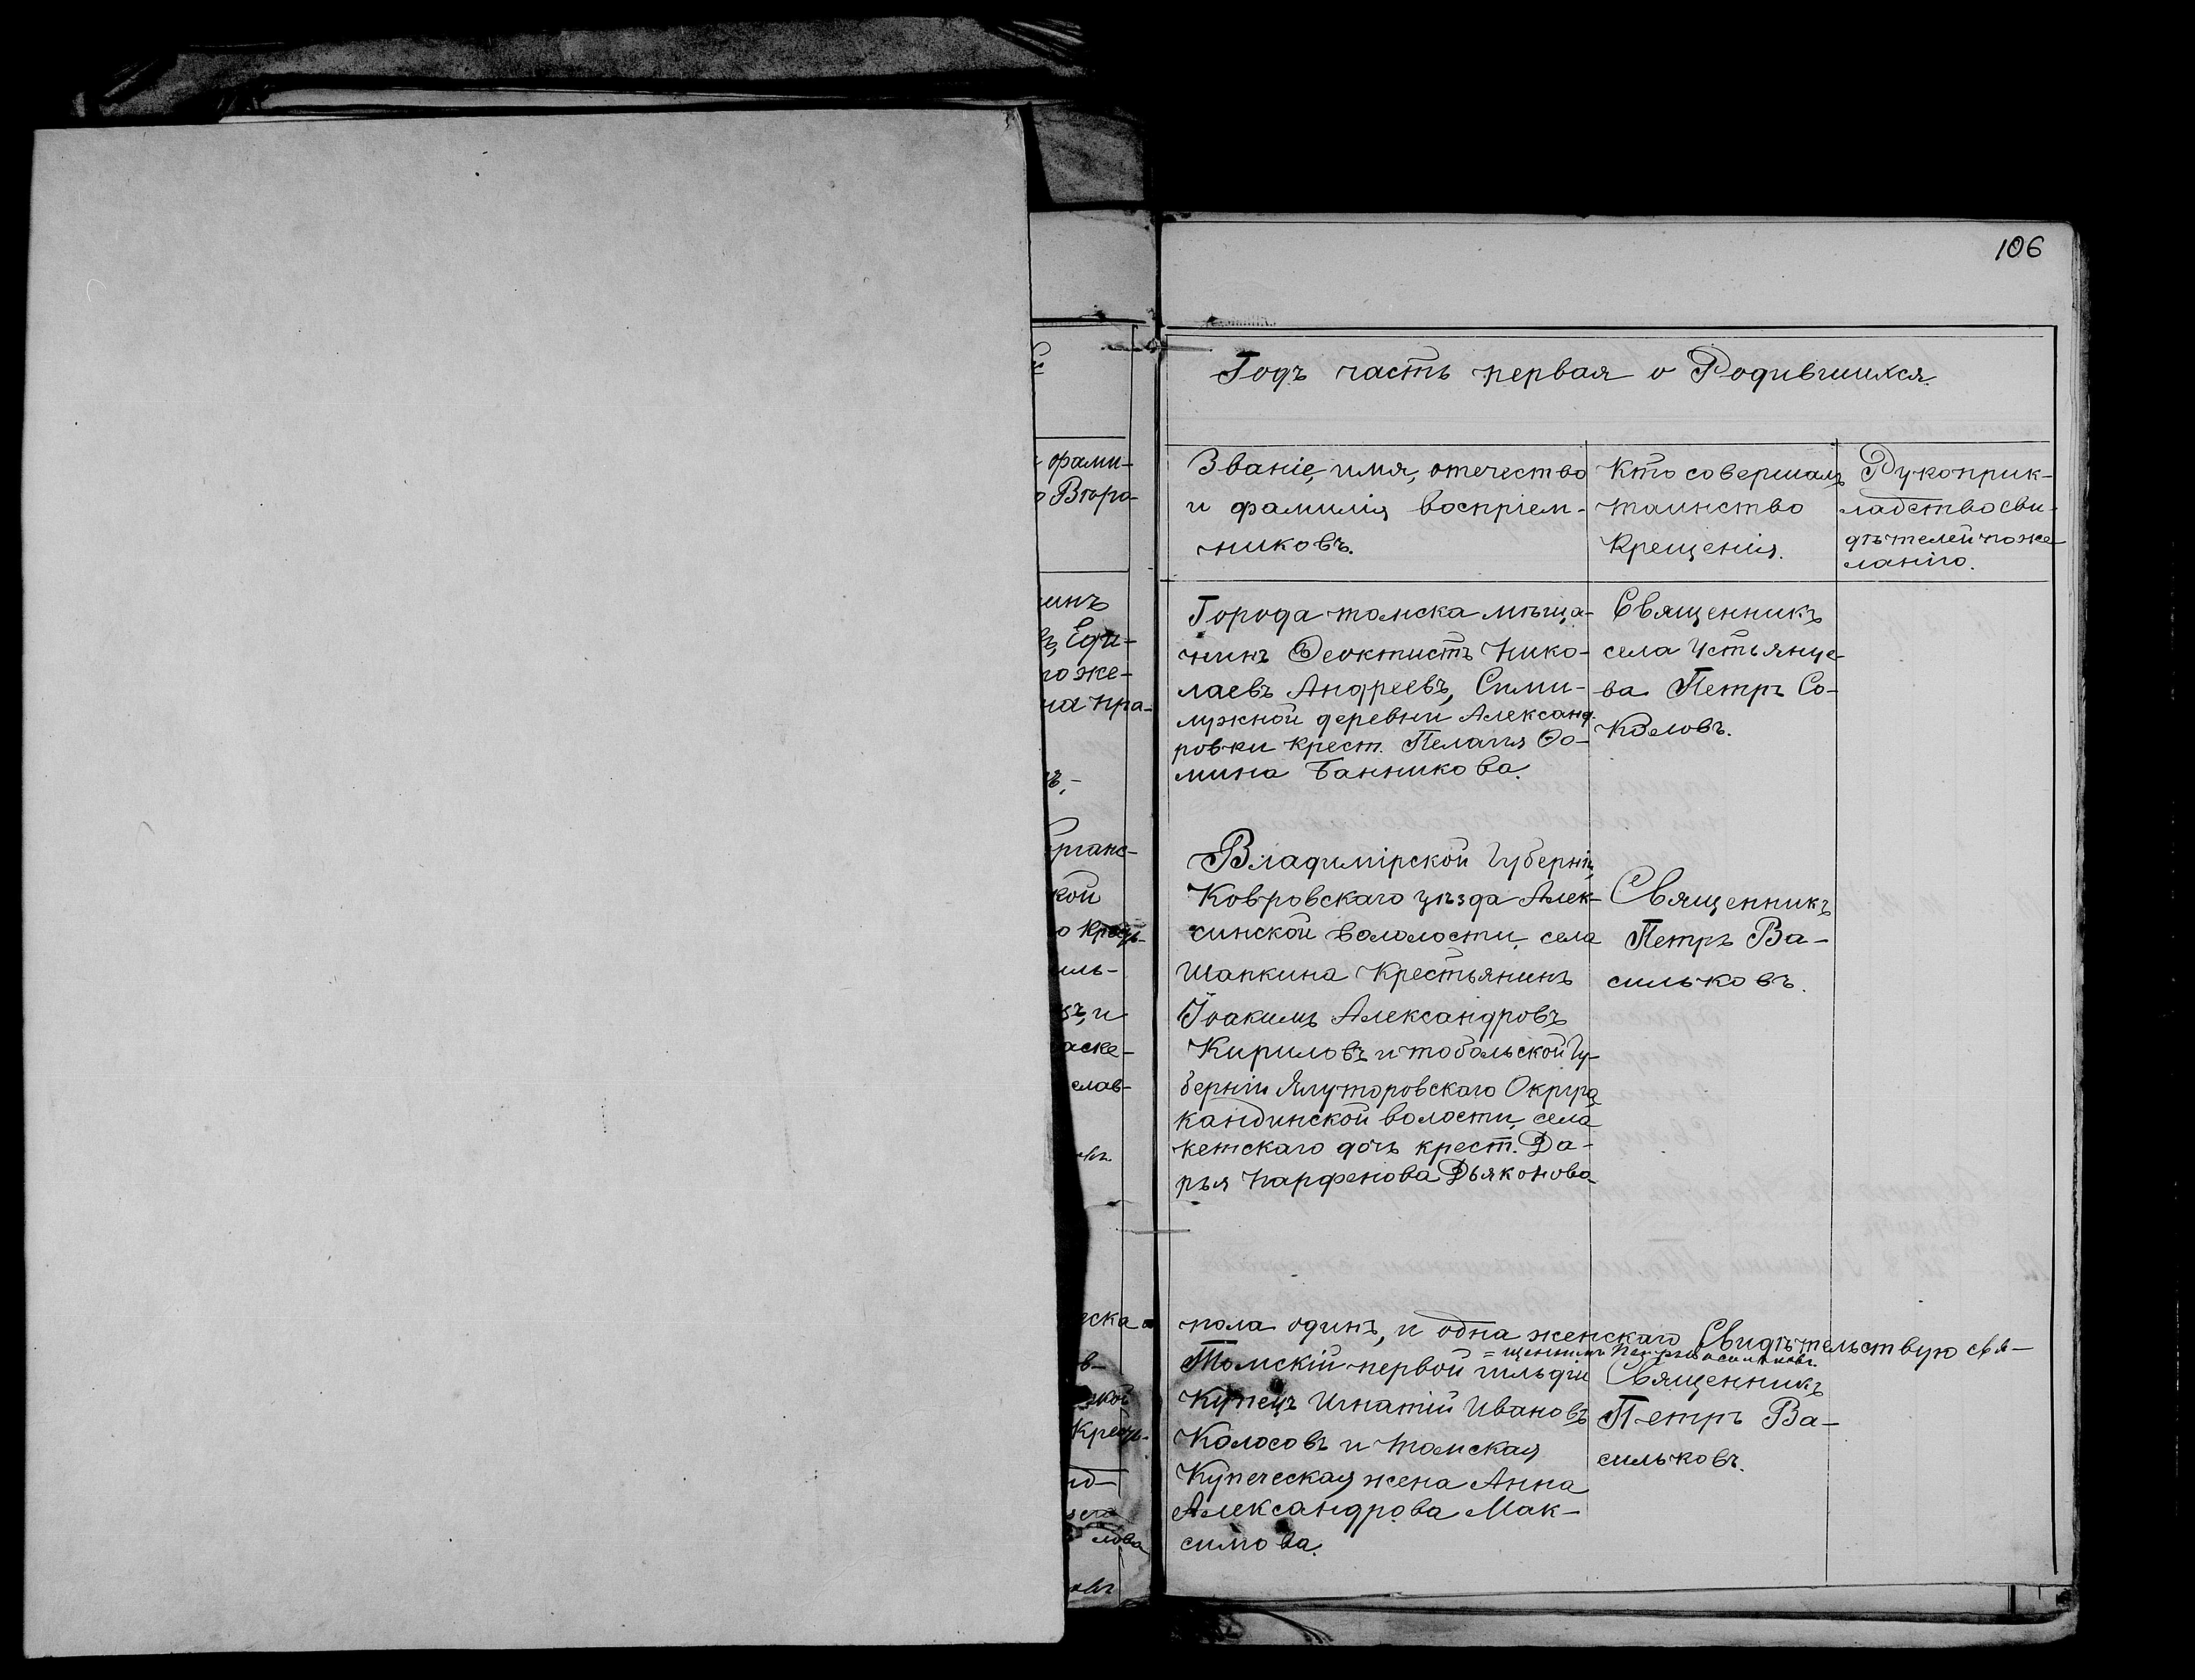 106
Годъ часть первая о Родившихся.
Званіе, имя, отечество
и фамилія воспріем-
никовъ.
Кто совершалъ
таинство
Крещенія.
Рукоприк-
ладство сви-
дѣтелей по же
ланію.
Города томска мѣща-
нинъ Феоктистъ Нико-
лаевъ Андреевъ,
лужной деревни Александ
ровки крест. Пелагія Ѳо-
мина Банникова.
Священникъ
села Устьянце-
ва Петръ Со-
коловъ.
Владимірской Губерніи,
Ковровскаго уѣзда Алек-
синской вололости, села
Шапкина Крестьянинъ
Іоакимъ Александровъ
Кириловъ и тобольской Гу-
берніи Ялуторовскаго Округа
кандинской волости, села
кетскаго дочь крест. Да-
рья Парфенова Дьяконова
Священникъ
Петръ Ва-
сильковъ.
пола одинъ, и одна женскаго Свидѣтельствую свя-
=щенникъ Петръ Васильковъ
Томскій первой гильдіи
Купецъ Игнатій Ивановъ
Колосовъ и томская
Купеческая жена Анна
Александрова Мак-
симова.
Священникъ
Петръ Ва-
сильковъ.
фами-
Втора-
инъ
Еди-
го же-
на пра-
ганс-
кой
о Кресть-
иль-
ъ, и
аске-
слав-
ска
в-
ской
Кресть-
лова